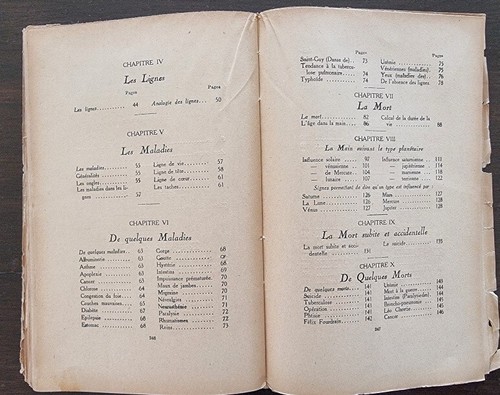 CHAPITRE IV
Les Lignes
Pages Pages
Les lignes 44 Analogie des lignes 50
CHAPITRE V
Les Maladies
Les maladies 55 Ligne de vie 57
Généralités 55 Ligne de tête 58
Les ongles 55 Ligne de cœur 61
Les maladies dans les lignes 57 Les taches 61
CHAPITRE VI
De quelques Maladies
De quelques maladies 63 Gorge 68
Albuminurie 63 Goutte
Asthme 63 Hystérie 68
Apoplexie 63 Intestins 69
Cancer Impuissance prématurée
Chlorose 64 Maux de jambes
Congestion du foie Migraine
Couches mauvaises 65 Névralgies 71
Diabète Neurasthénie 71
Epilepsie Paralysie 72
Estomac 68 Rhumatismes 72
Reins 73
346
Pages Pages
Saint-Guy (Danse de) 73 Utérus 75
Tendance à la tuberculose pulmonaire 74 Vénériennes (maladies) 75
Typhoïde 74 Yeux (maladies des) 76
De l'absence des lignes 78
CHAPITRE VII
La Mort
La mort 82 Calcul de la durée de la vie 88
L'âge dans la main 86
CHAPITRE VIII
La Main suivant le type planétaire
Influence solaire 92 Influence saturnienne 111
— vénusienne 101 — jupitérienne 114
— de Mercure 104 — martienne 118
— lunaire 107 — terrienne 122
Signes permettant de dire qu'un type est influencé par :
Saturne 126 Mars 127
La Lune 126 Mercure 128
Vénus 127 Jupiter 128
CHAPITRE IX
La Mort subite et accidentelle
La mort subite et accidentelle 131 Le suicide 135
CHAPITRE X
De Quelques Morts
De quelques morts 141 Urémie 143
Suicide 141 Mort à la guerre 144
Tuberculose 141 Intestins (Paralysie des) 144
Opération 141 Broncho-pneumonie 145
Phtisie 141 Léo Claretie 146
Félix Fourdrain 142 Cancer 146
347